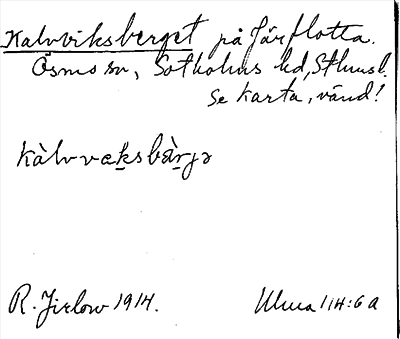 Kalvviksberget på Järflotta.
Ösmo sn, Sotholms hd, Sthmsl.
Se karta, vänd!
kàlvvæksbàrjə
R. Jirlow 1914.
Ulma 1/14:6 a